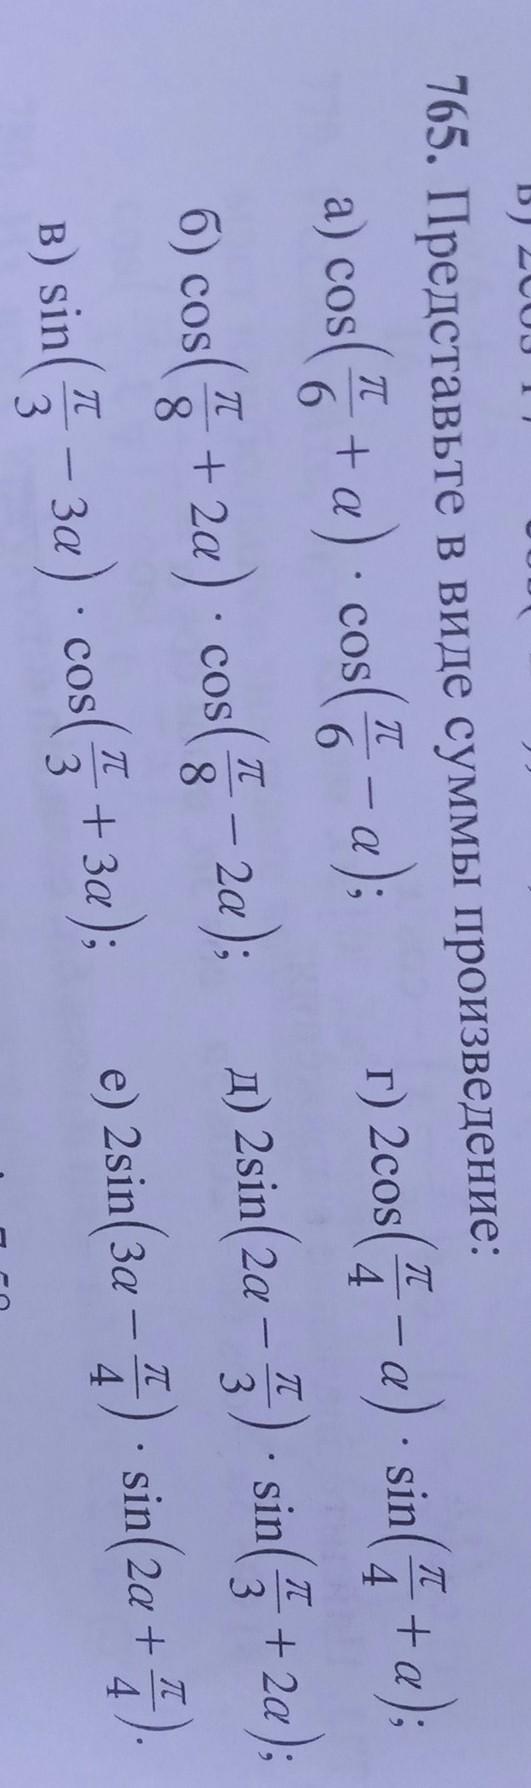 765. Представьте в виде суммы произведение:
а) cos(π/6 + α) · cos(π/6 − α); г) 2cos(π/4 − α) · sin(π/4 + α);
б) cos(π/8 + 2α) · cos(π/8 − 2α); д) 2sin(2α − π/3) · sin(π/3 + 2α);
в) sin(π/3 − 3α) · cos(π/3 + 3α); е) 2sin(3α − π/4) · sin(2α + π/4).